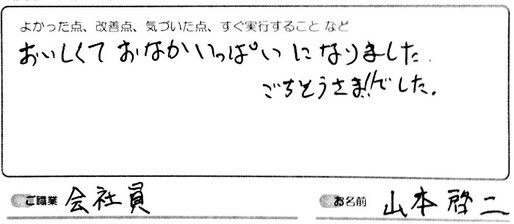 よかった点、改善点、気づいた点、すぐ実行すること など
おいしくて おなかいっぱい になりました.
ごちそうさま!!でした。
ご職業 会社員
お名前 山本 啓二